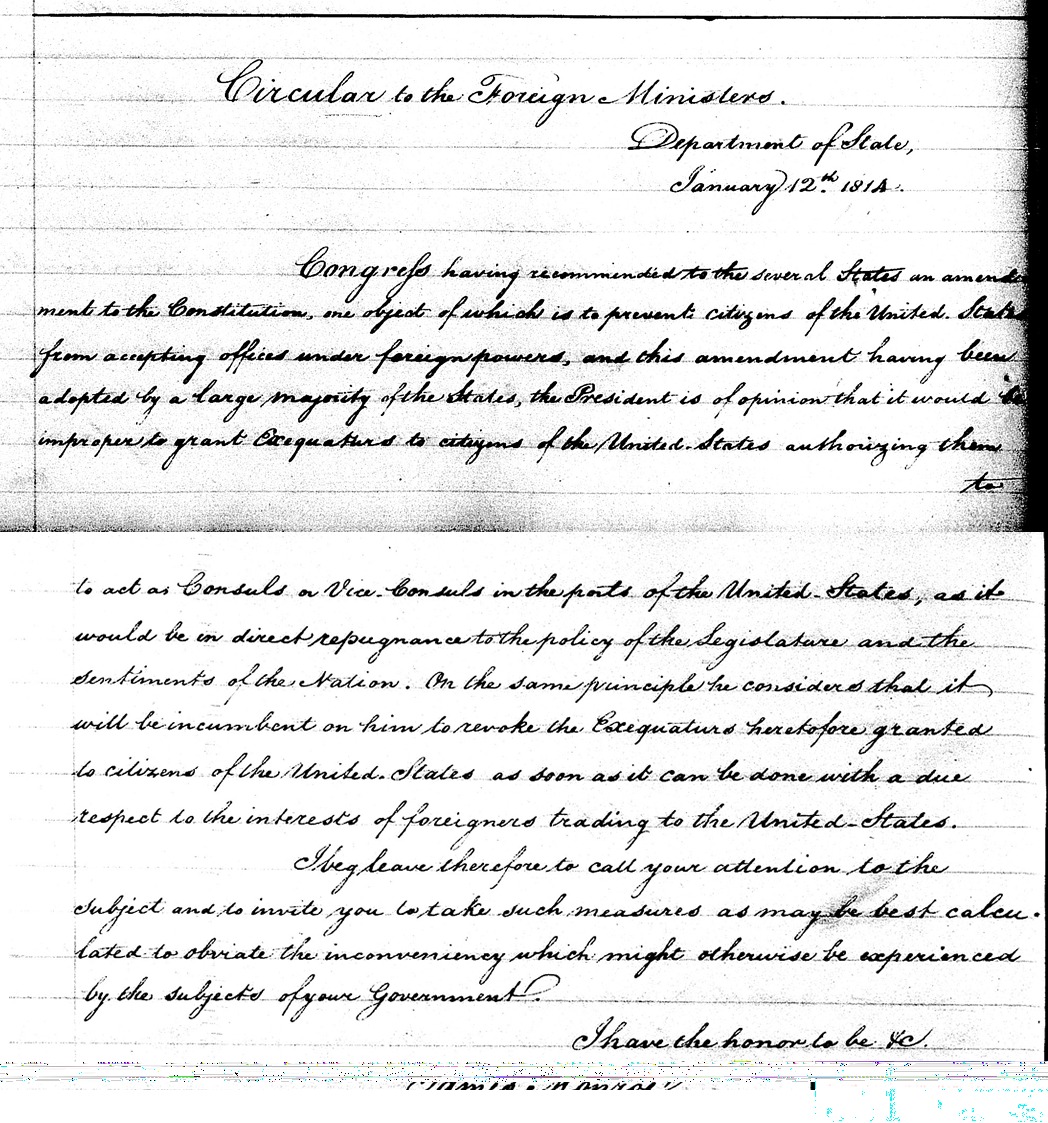 Circular to the Foreign Ministers.
Department of State,
January 12th. 1814.
Congress having recommended to the several States an amend-
ment to the Constitution, one object of which is to prevent citizens of the United. States
from accepting offices under foreign powers, and this amendment having been
adopted by a large majority of the States, the President is of opinion that it would be
improper to grant Exequaturs to citizens of the United-States authorizing them
to
to act as Consuls or Vice-Consuls in the ports of the United-States, as it
would be in direct repugnance to the policy of the Legislature and the
sentiments of the Nation. On the same principle he considers that it
will be incumbent on him to revoke the Exequaturs heretofore granted
to citizens of the United-States as soon as it can be done with a due
respect to the interests of foreigners trading to the United-States.
I beg leave therefore to call your attention to the
subject and to invite you to take such measures as may be best calcu-
lated to obviate the inconveniency which might otherwise be experienced
by the subjects of your Government.
I have the honor to be &c.